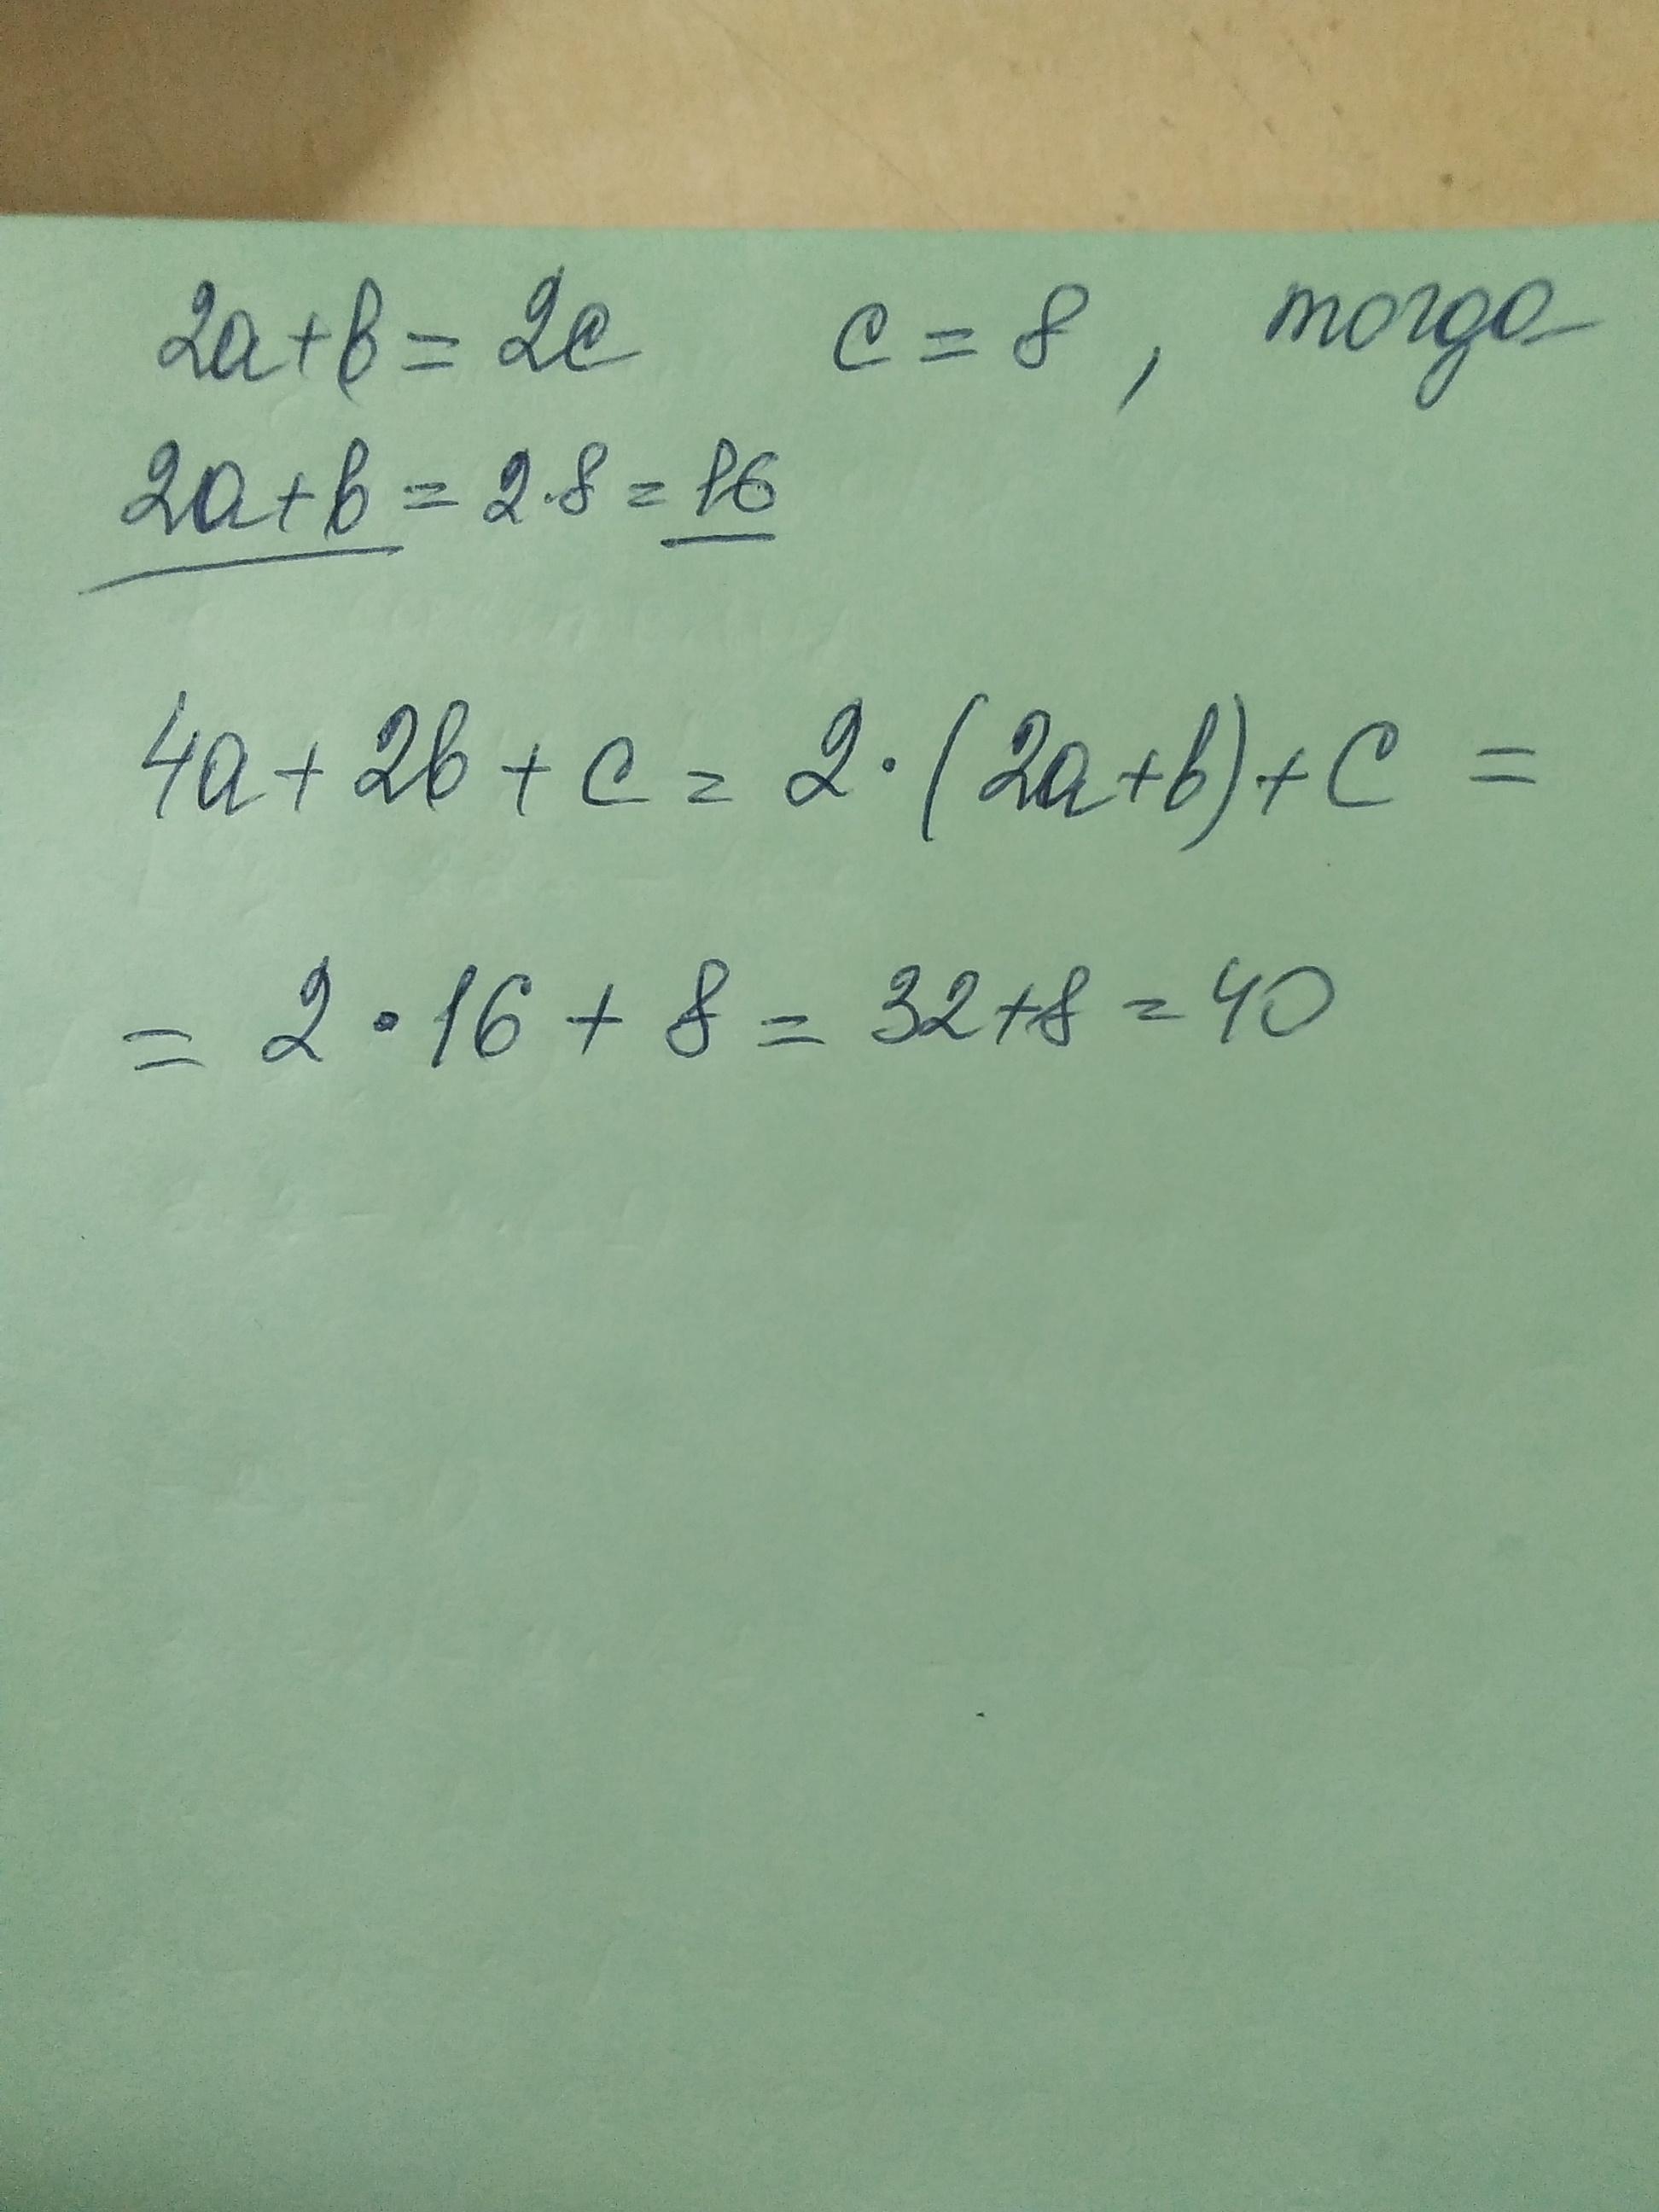 2a+b=2c c=8, тогда
2a+b=2·8=16
4a+2b+c=2·(2a+b)+c=
=2·16+8=32+8=40